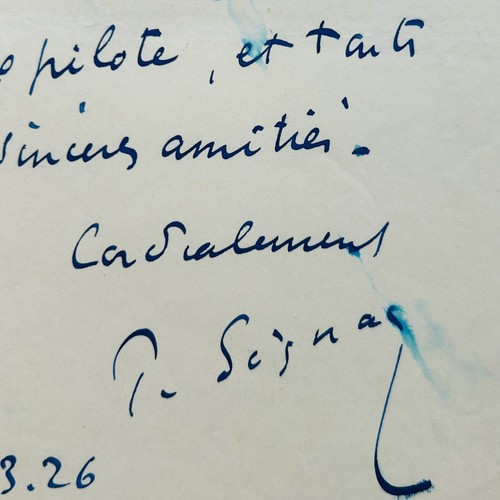 pilote, et toute
sincères amitiés.
Cordialement
P. Signac
3.26